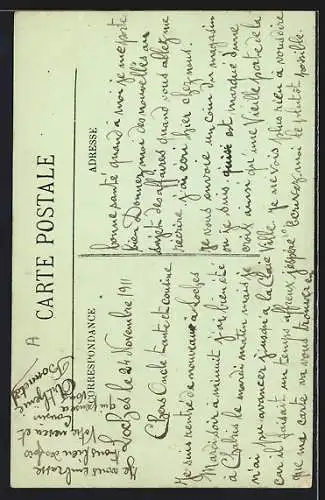 CARTE POSTALE
CORRESPONDANCE
ADRESSE
Loches le 24 Novembre 1911
Chers Oncle tante et cousine
Je suis rentré de nouveau à Loches
Mardi soir à minuit j'ai rien été
à Chablis le mardi matin mais je
n'ai pu avancer jusqu'à la Claie Ville
car il faisait un temps affreux j'espère
que ma carte va vous trouver en
bonne santé quand à moi je me porte
bien. Donnez moi des nouvelles au
sujet des affaires quand vous allez me
réécrire j'ai écri hier chez nous.
Je vous envoie un coin du magasin
ou je suis qui est marqué d'une
croix ainsi qu'une Vieille porte de la
Ville je ne vois plus rien à vous dire
écrivez moi le plutôt possible.
Je vous embrasse
tous bien des fois
Votre neveu et
Cousin
qui pense à
vous